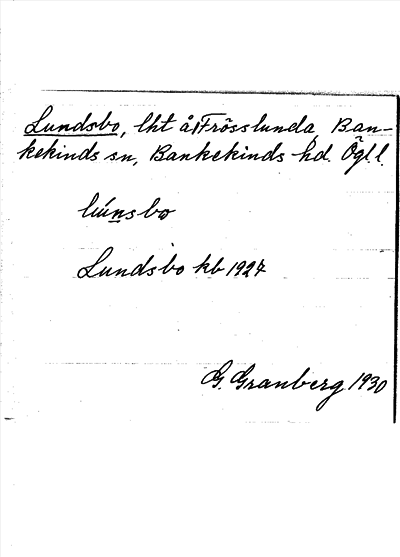 Lundsbo, lht å Frösslunda, Ban-
kekinds sn, Bankekinds hd. Ögl l.
lúnsbo
Lundsbo kb 1927
G. Granberg 1930